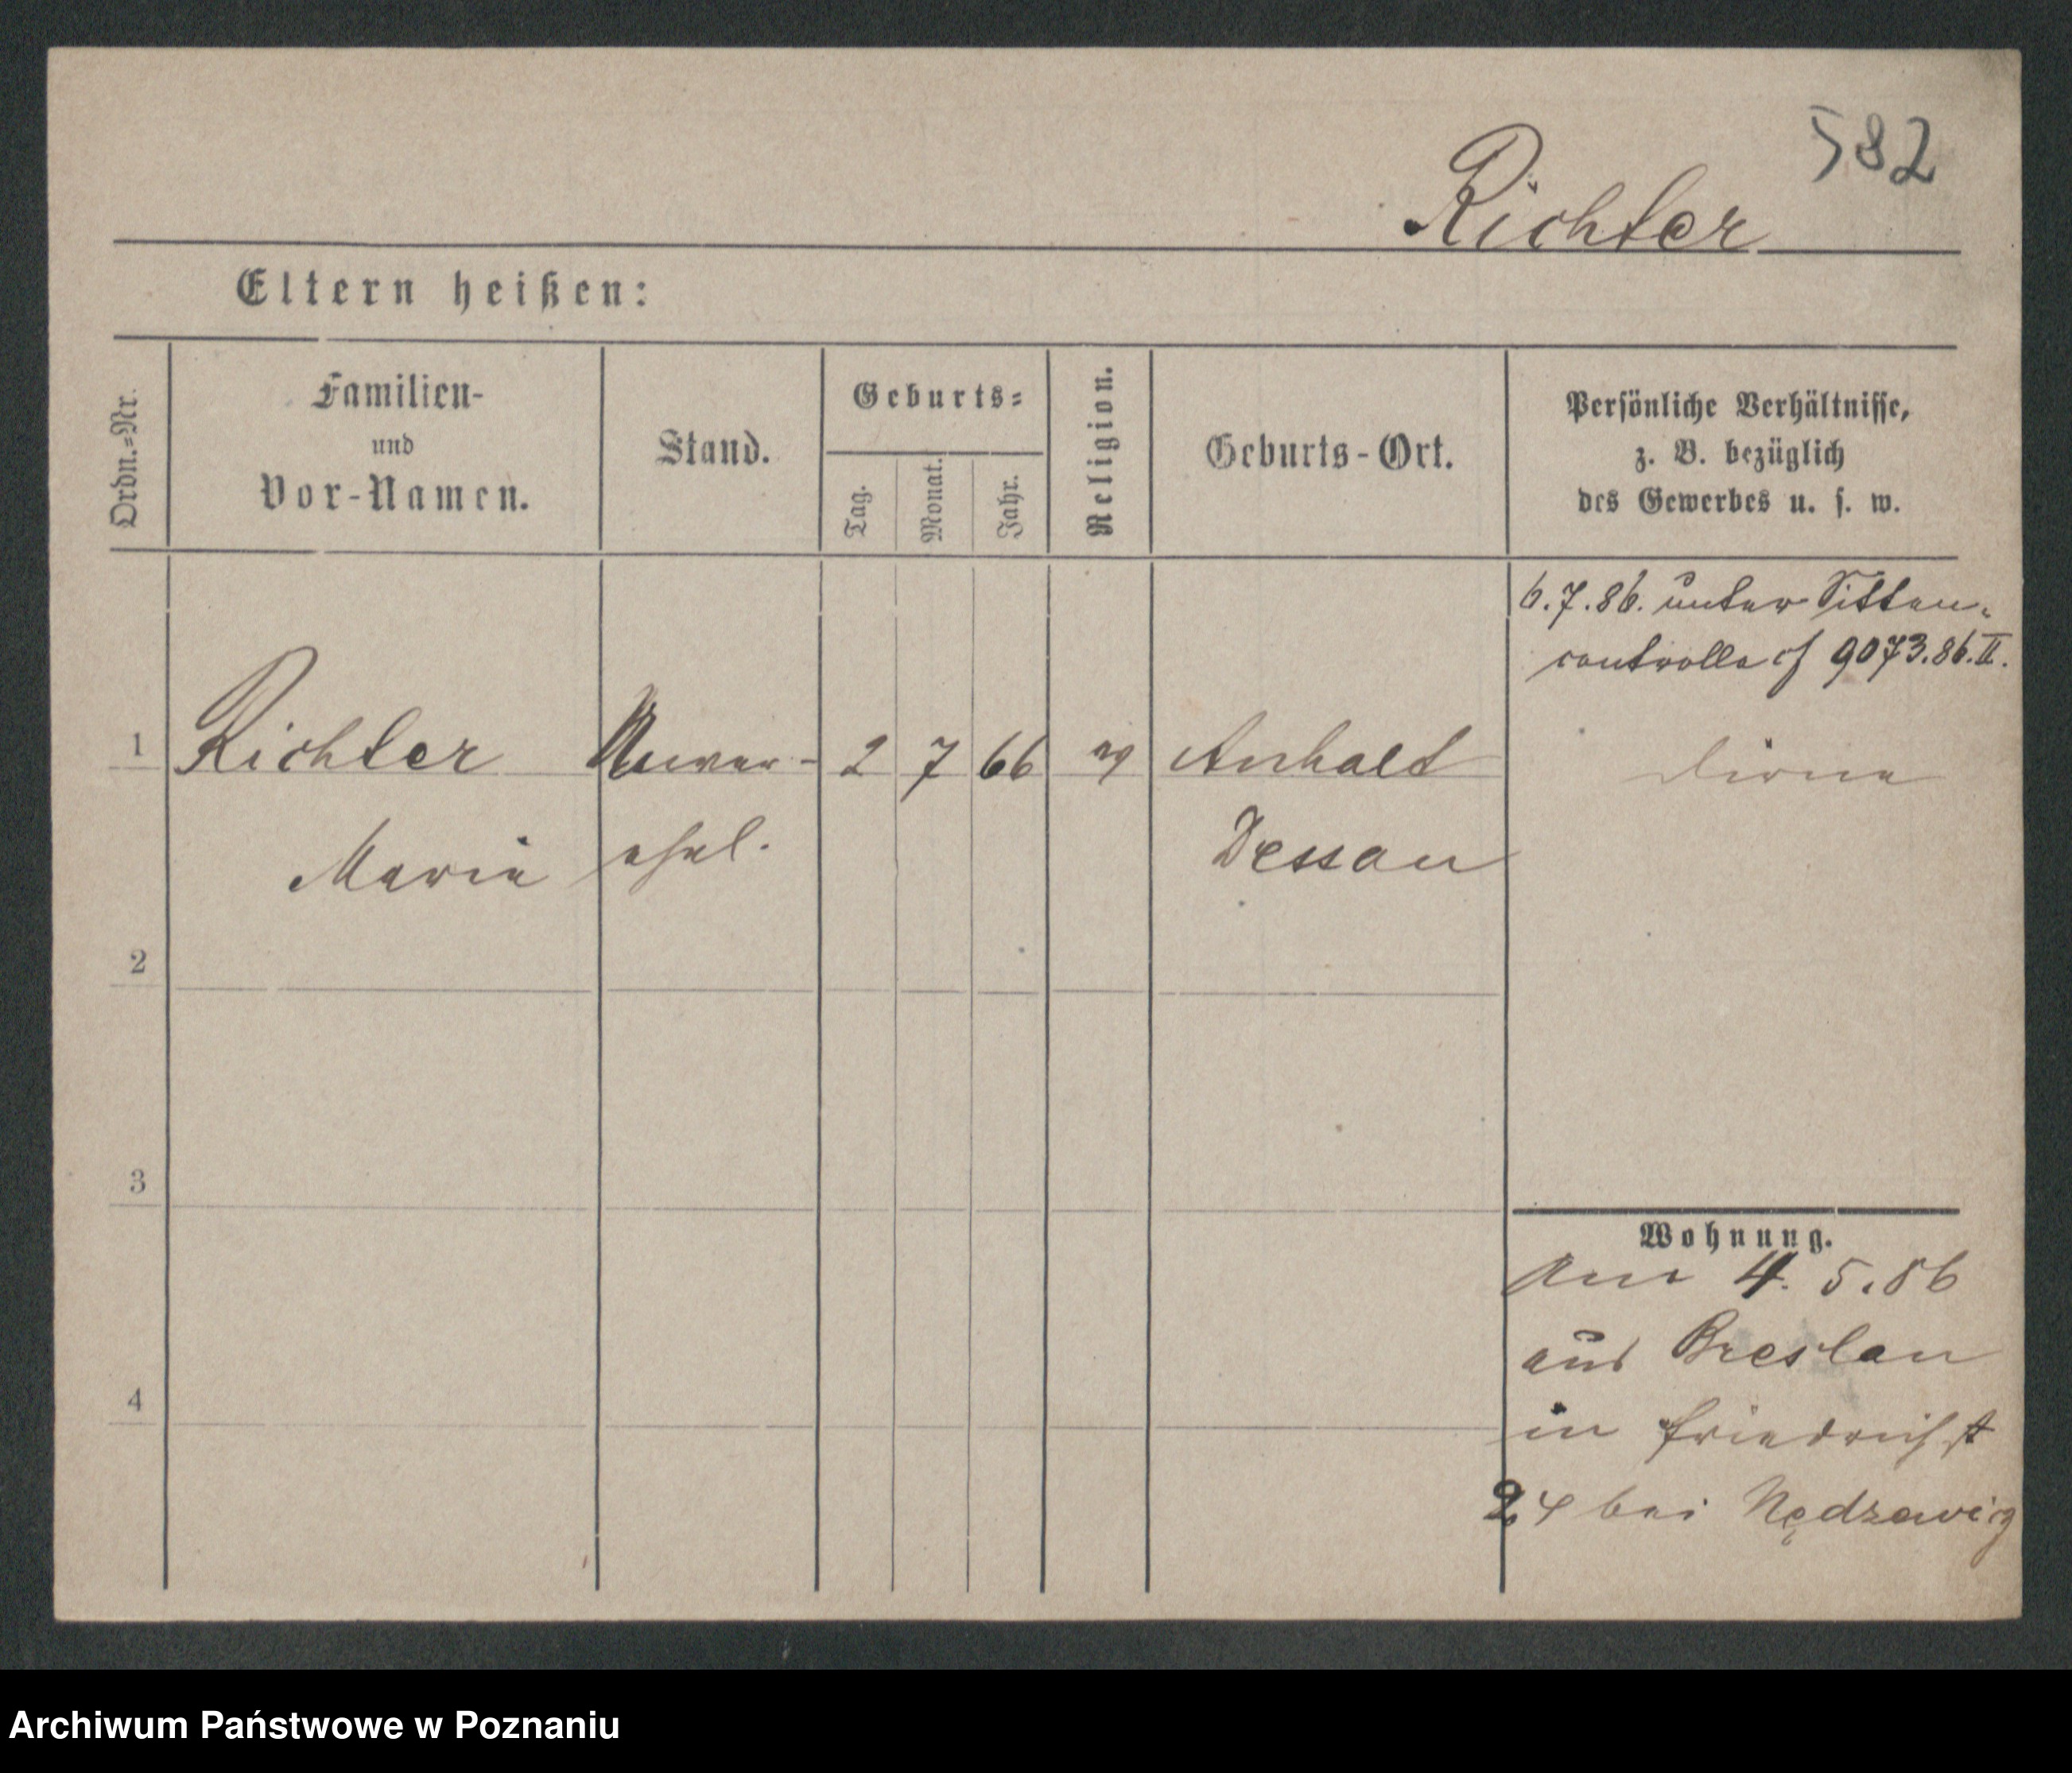 582
Richter
Eltern heißen:
Ordn.=Nr.
Familien-
und
Vor-Namen.
Stand.
Geburts=
Tag.
Monat.
Jahr.
Religion.
Geburts-Ort.
Persönliche Verhältnisse,
z. B. bezüglich
des Gewerbes u. s. w.
6.7.86. unter Sitten-
controlle cf 9073.86.II.
1 Richter Unver- 2 7 66 ev Anhalt Dirne
Marie ehel. Dessau
2
3
4
Wohnung.
Am 4. 5. 86
aus Breslau
in Friedrichst
24 bei
Archiwum Państwowe w Poznaniu